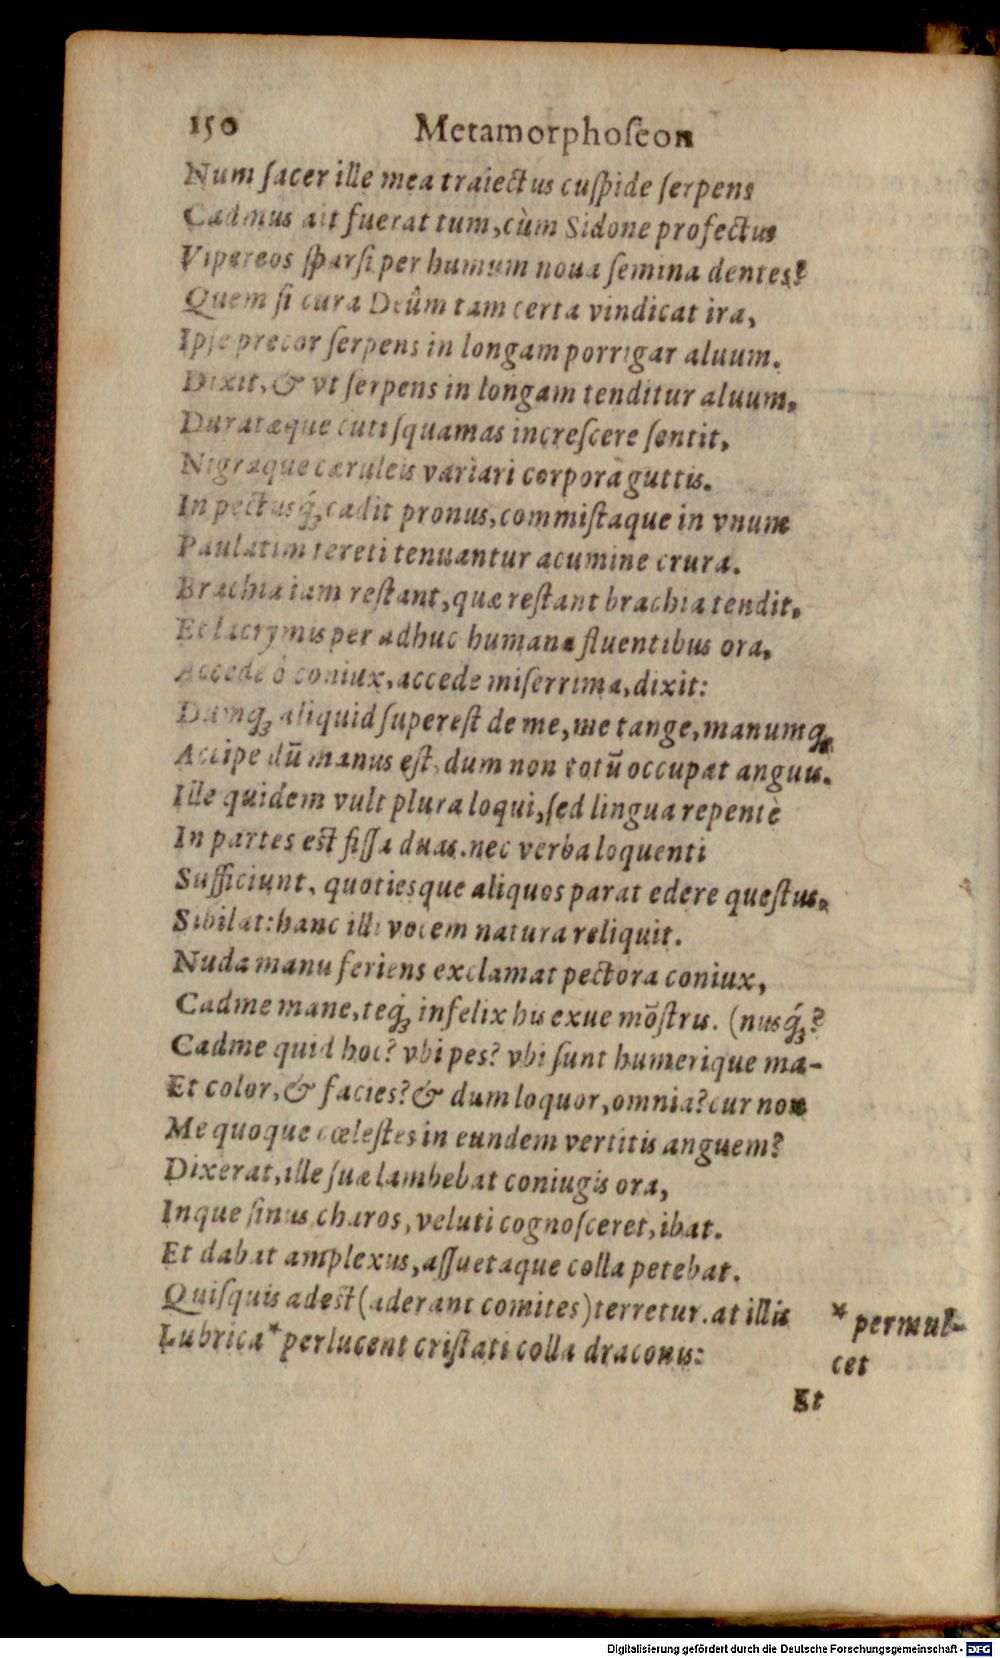 150 Metamorphoſeon
Num ſacer ille mea traiectus cuſpide ſerpens
Cadmus ait fuerat tum, cùm Sidone profectus
Vipereos ſparſi per humum noua ſemina dentes?
Quem ſi cura Deûm tam certa vindicat ira,
Ipſe precor ſerpens in longam porrigar aluum.
Dixit, & vt ſerpens in longam tenditur aluum,
Duratæque cuti ſquamas increſcere ſentit,
Nigraque cæruleis variari corpora guttis.
In pectusq́ꝫ cadit pronus, commiſtaque in vnum
Paulatim tereti tenuantur acumine crura.
Brachia iam reſtant, quæ reſtant brachia tendit,
Et lacrymis per adhuc humana fluentibus ora,
Accede ô coniux, accede miſerrima, dixit:
Dumqꝫ aliquid ſupereſt de me, me tange, manumqꝫ
Accipe dū manus eſt, dum non totū occupat anguis.
Ille quidem vult plura loqui, ſed lingua repentè
In partes eſt fiſſa duas. nec verba loquenti
Sufficiunt, quotiesque aliquos parat edere queſtus,
Sibilat: hanc illi vocem natura reliquit.
Nuda manu feriens exclamat pectora coniux,
Cadme mane, teq́ꝫ infelix his exue mōſtris. (nusq́ꝫ?
Cadme quid hoc? vbi pes? vbi ſunt humerique ma-
Et color, & facies? & dum loquor, omnia? cur non
Me quoque cœleſtes in eundem vertitis anguem?
Dixerat, ille ſuæ lambebat coniugis ora,
Inque ſinus charos, veluti cognoſceret, ibat.
Et dabat amplexus, aſſuetaque colla petebat.
Quiſquis adeſt (aderant comites) terretur. at illis
Lubrica * perlucent criſtati colla draconis:
* permul-
cet
Et
Digitalisierung gefördert durch die Deutsche Forschungsgemeinschaft - DFG